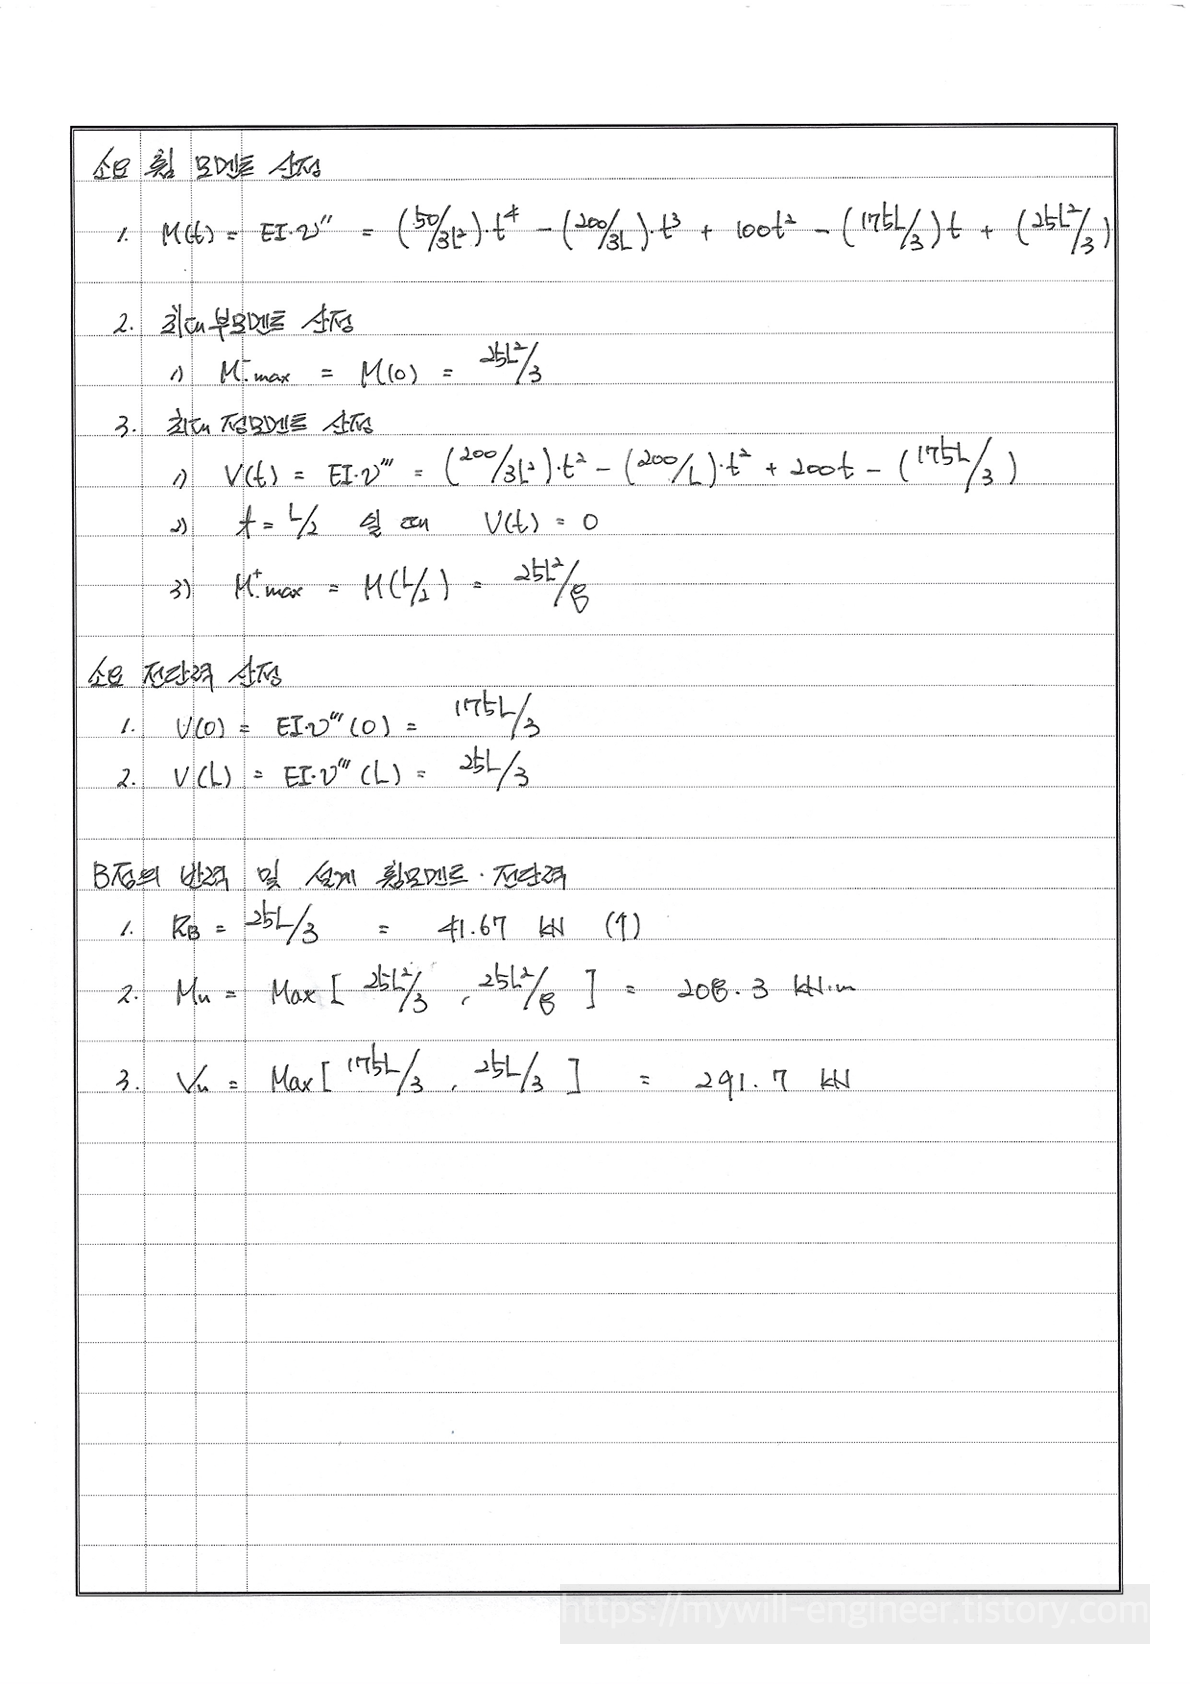 소요 휨 모멘트 산정
1. M(t) = EI·v'' = (50/3L²)·t⁴ - (200/3L)·t³ + 100t² - (175L/3)t + (25L²/3)
2. 최대부모멘트 산정
1) M⁻max = M(0) = 25L²/3
3. 최대 정모멘트 산정
1) V(t) = EI·v''' = (200/3L²)·t² - (200/L)·t² + 200t - (175L/3)
2) t = L/2 일 때 V(t) = 0
3) M⁺max = M(L/2) = 25L²/8
소요 전단력 산정
1. V(0) = EI·v'''(0) = 175L/3
2. V(L) = EI·v'''(L) = 25L/3
B점의 반력 및 설계 휨모멘트·전단력
1. RB = 25L/3 = 41.67 kN (↑)
2. Mu = Max[ 25L²/3 , 25L²/8 ] = 208.3 kN·m
3. Vu = Max[ 175L/3 , 25L/3 ] = 291.7 kN
https://mywill-engineer.tistory.com